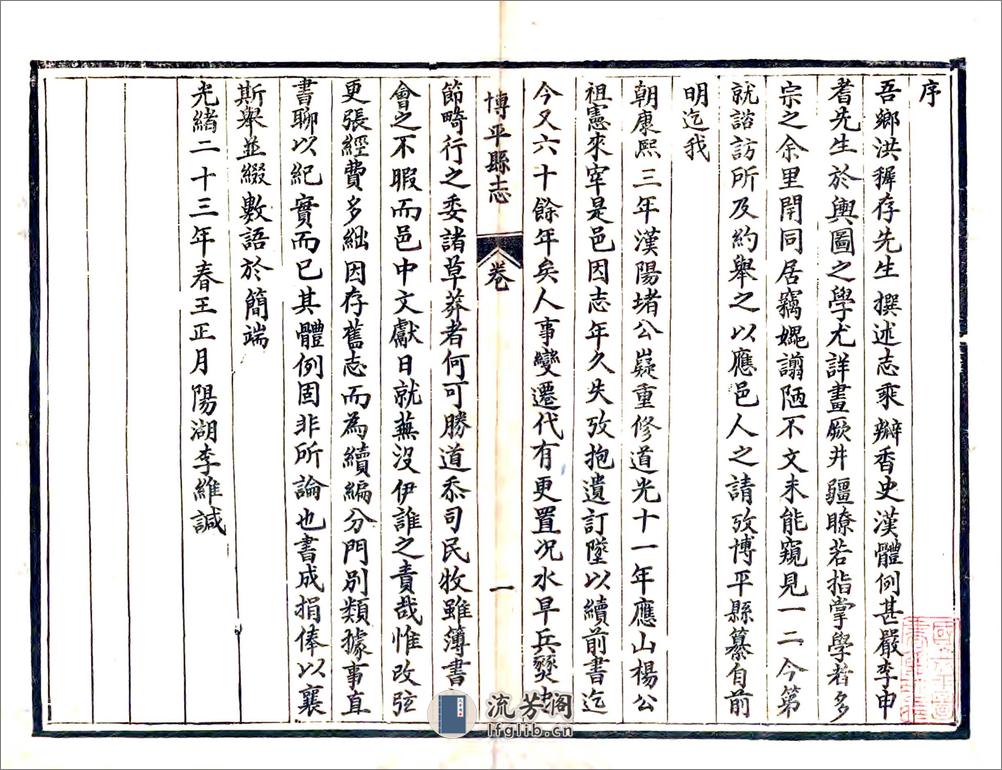 序
吾鄉洪穉存先生撰述志乘辦香史漢體例甚嚴李申
耆先生於輿圖之學尤詳畫厥井疆瞭若指掌學者多
宗之余里閈同居竊媿謭陋不文未能窺見一二今第
就諮訪所及約舉之以應邑人之請攷博平縣纂自前
明迄我
朝康熙三年漢陽堵公嶷重修道光十一年應山楊公
祖憲來宰是邑因志年久失攷抱遺訂墜以續前書迄
今又六十餘年矣人事變遷代有更置况水旱兵燹忠
博平縣志
卷
一
節畸行之委諸草莽者何可勝道忝司民牧雖簿書
會之不暇而邑中文獻日就蕪沒伊誰之責哉惟改弦
更張經費多絀因存舊志而為續編分門別類據事直
書聊以紀實而已其體例固非所論也書成捐俸以襄
斯舉並綴數語於簡端
光緒二十三年春王正月陽湖李維諴
流芳阁
lfglib.cn